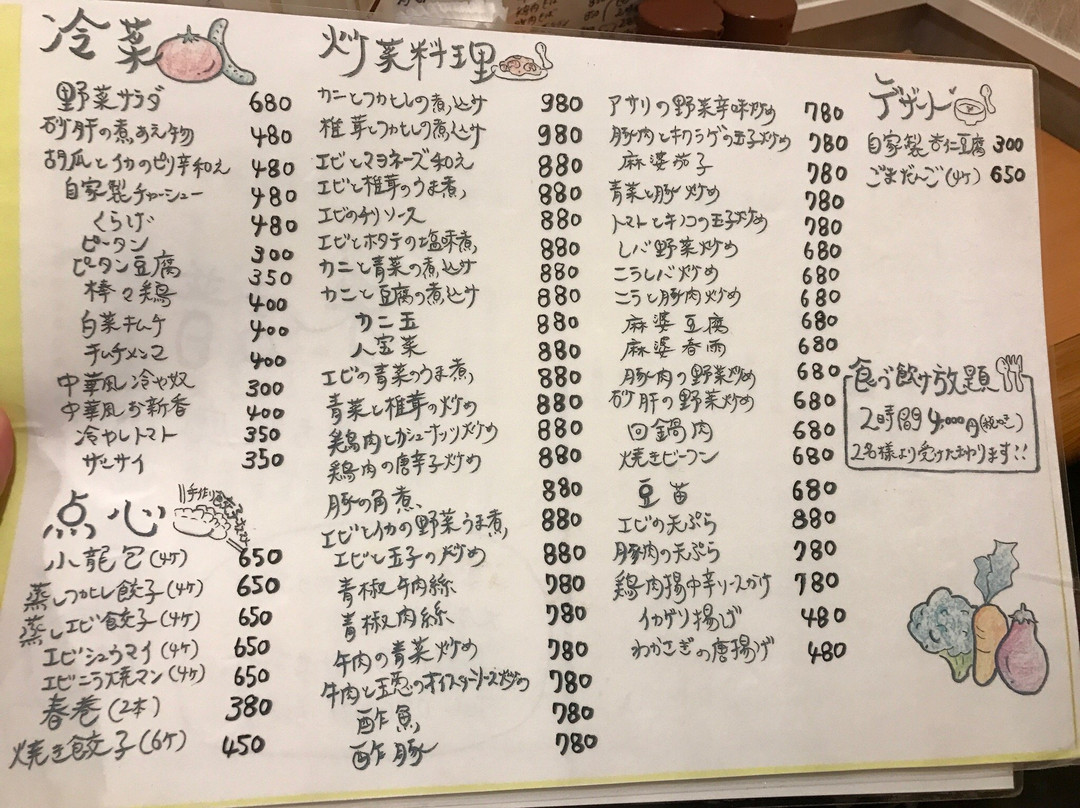 冷菜
野菜サラダ 680
砂肝の煮あえ物 480
胡瓜とイカのピリ辛和え 480
自家製チャーシュー 480
くらげ 480
ピータン 300
ピータン豆腐 350
棒々鶏 400
白菜キムチ 400
チルチメンマ 400
中華風冷や奴 300
中華風お新香 400
冷やしトマト 350
ザーサイ 350
点心
手作り
小龍包(4ケ) 650
蒸しフカヒレ餃子(4ケ) 650
蒸しエビ餃子(4ケ) 650
エビシュウマイ(4ケ) 650
エビニラ焼マン(4ケ) 650
春巻(2本) 380
焼き餃子(6ケ) 450
炒菜料理
カニとフカヒレの煮込サ 980
椎茸とフカヒレの煮込サ 980
エビとマヨネーズ和え 880
エビと椎茸のうま煮 880
エビのチリソース 880
エビとホタテの塩味煮 880
カニと青菜の煮込サ 880
カニと豆腐の煮込サ 880
カニ玉 880
八宝菜 880
エビの青菜のうま煮 880
青菜と椎茸の炒め 880
鶏肉とカシューナッツ炒め 880
鶏肉の唐辛子炒め 880
豚の角煮 880
エビとイカの野菜うま煮 880
エビと玉子の炒め 880
青椒牛肉絲 780
青椒肉絲 780
牛肉の青菜炒め 780
牛肉と玉葱のオイスターソース炒め 780
酢魚 780
酢豚 780
アサリの野菜辛味炒め 780
豚肉とキクラゲの玉子炒め 780
麻婆茄子 780
青菜と豚炒め 780
トマトとキノコの玉子炒め 780
レバ野菜炒め 680
ニラレバ炒め 680
ニラと豚肉炒め 680
麻婆豆腐 680
麻婆春雨 680
豚肉の野菜炒め 680
砂肝の野菜炒め 680
回鍋肉 680
焼きビーフン 680
豆苗 680
エビの天ぷら 880
豚肉の天ぷら 780
鶏肉揚中辛ソースがけ 780
イカゲソ揚げ 480
わかさぎの唐揚げ 480
デザート
自家製杏仁豆腐 300
ごまだんご(4ケ) 650
食べ飲け放題
2時間4,000円(税込)
2名様より受けたまわります!!